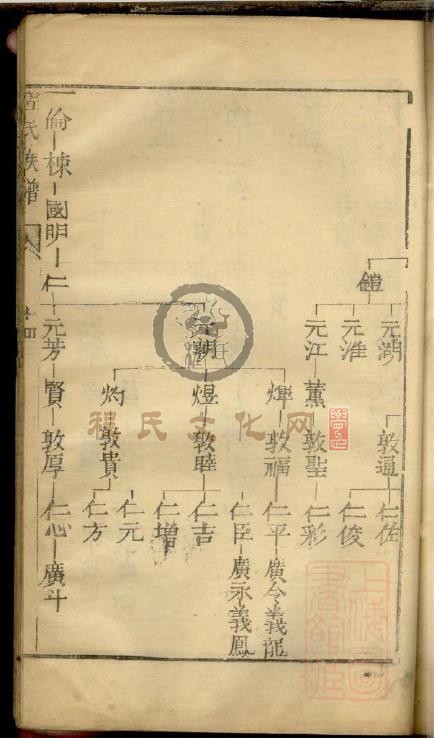 鎧
元湖
敦通
仁佐
仁俊
元淮
元江 薰 敦聖 仁彩
煇 敦福 仁平 廣令 義龍
仁臣 廣永 義鳳
煜 敦睦 仁吉
仁增
灼 敦貴 仁元
仁方
倫 棟 國明 仁 元芳 賢 敦厚 仁心 廣斗
氏族譜
程氏文化网
上海圖書館藏